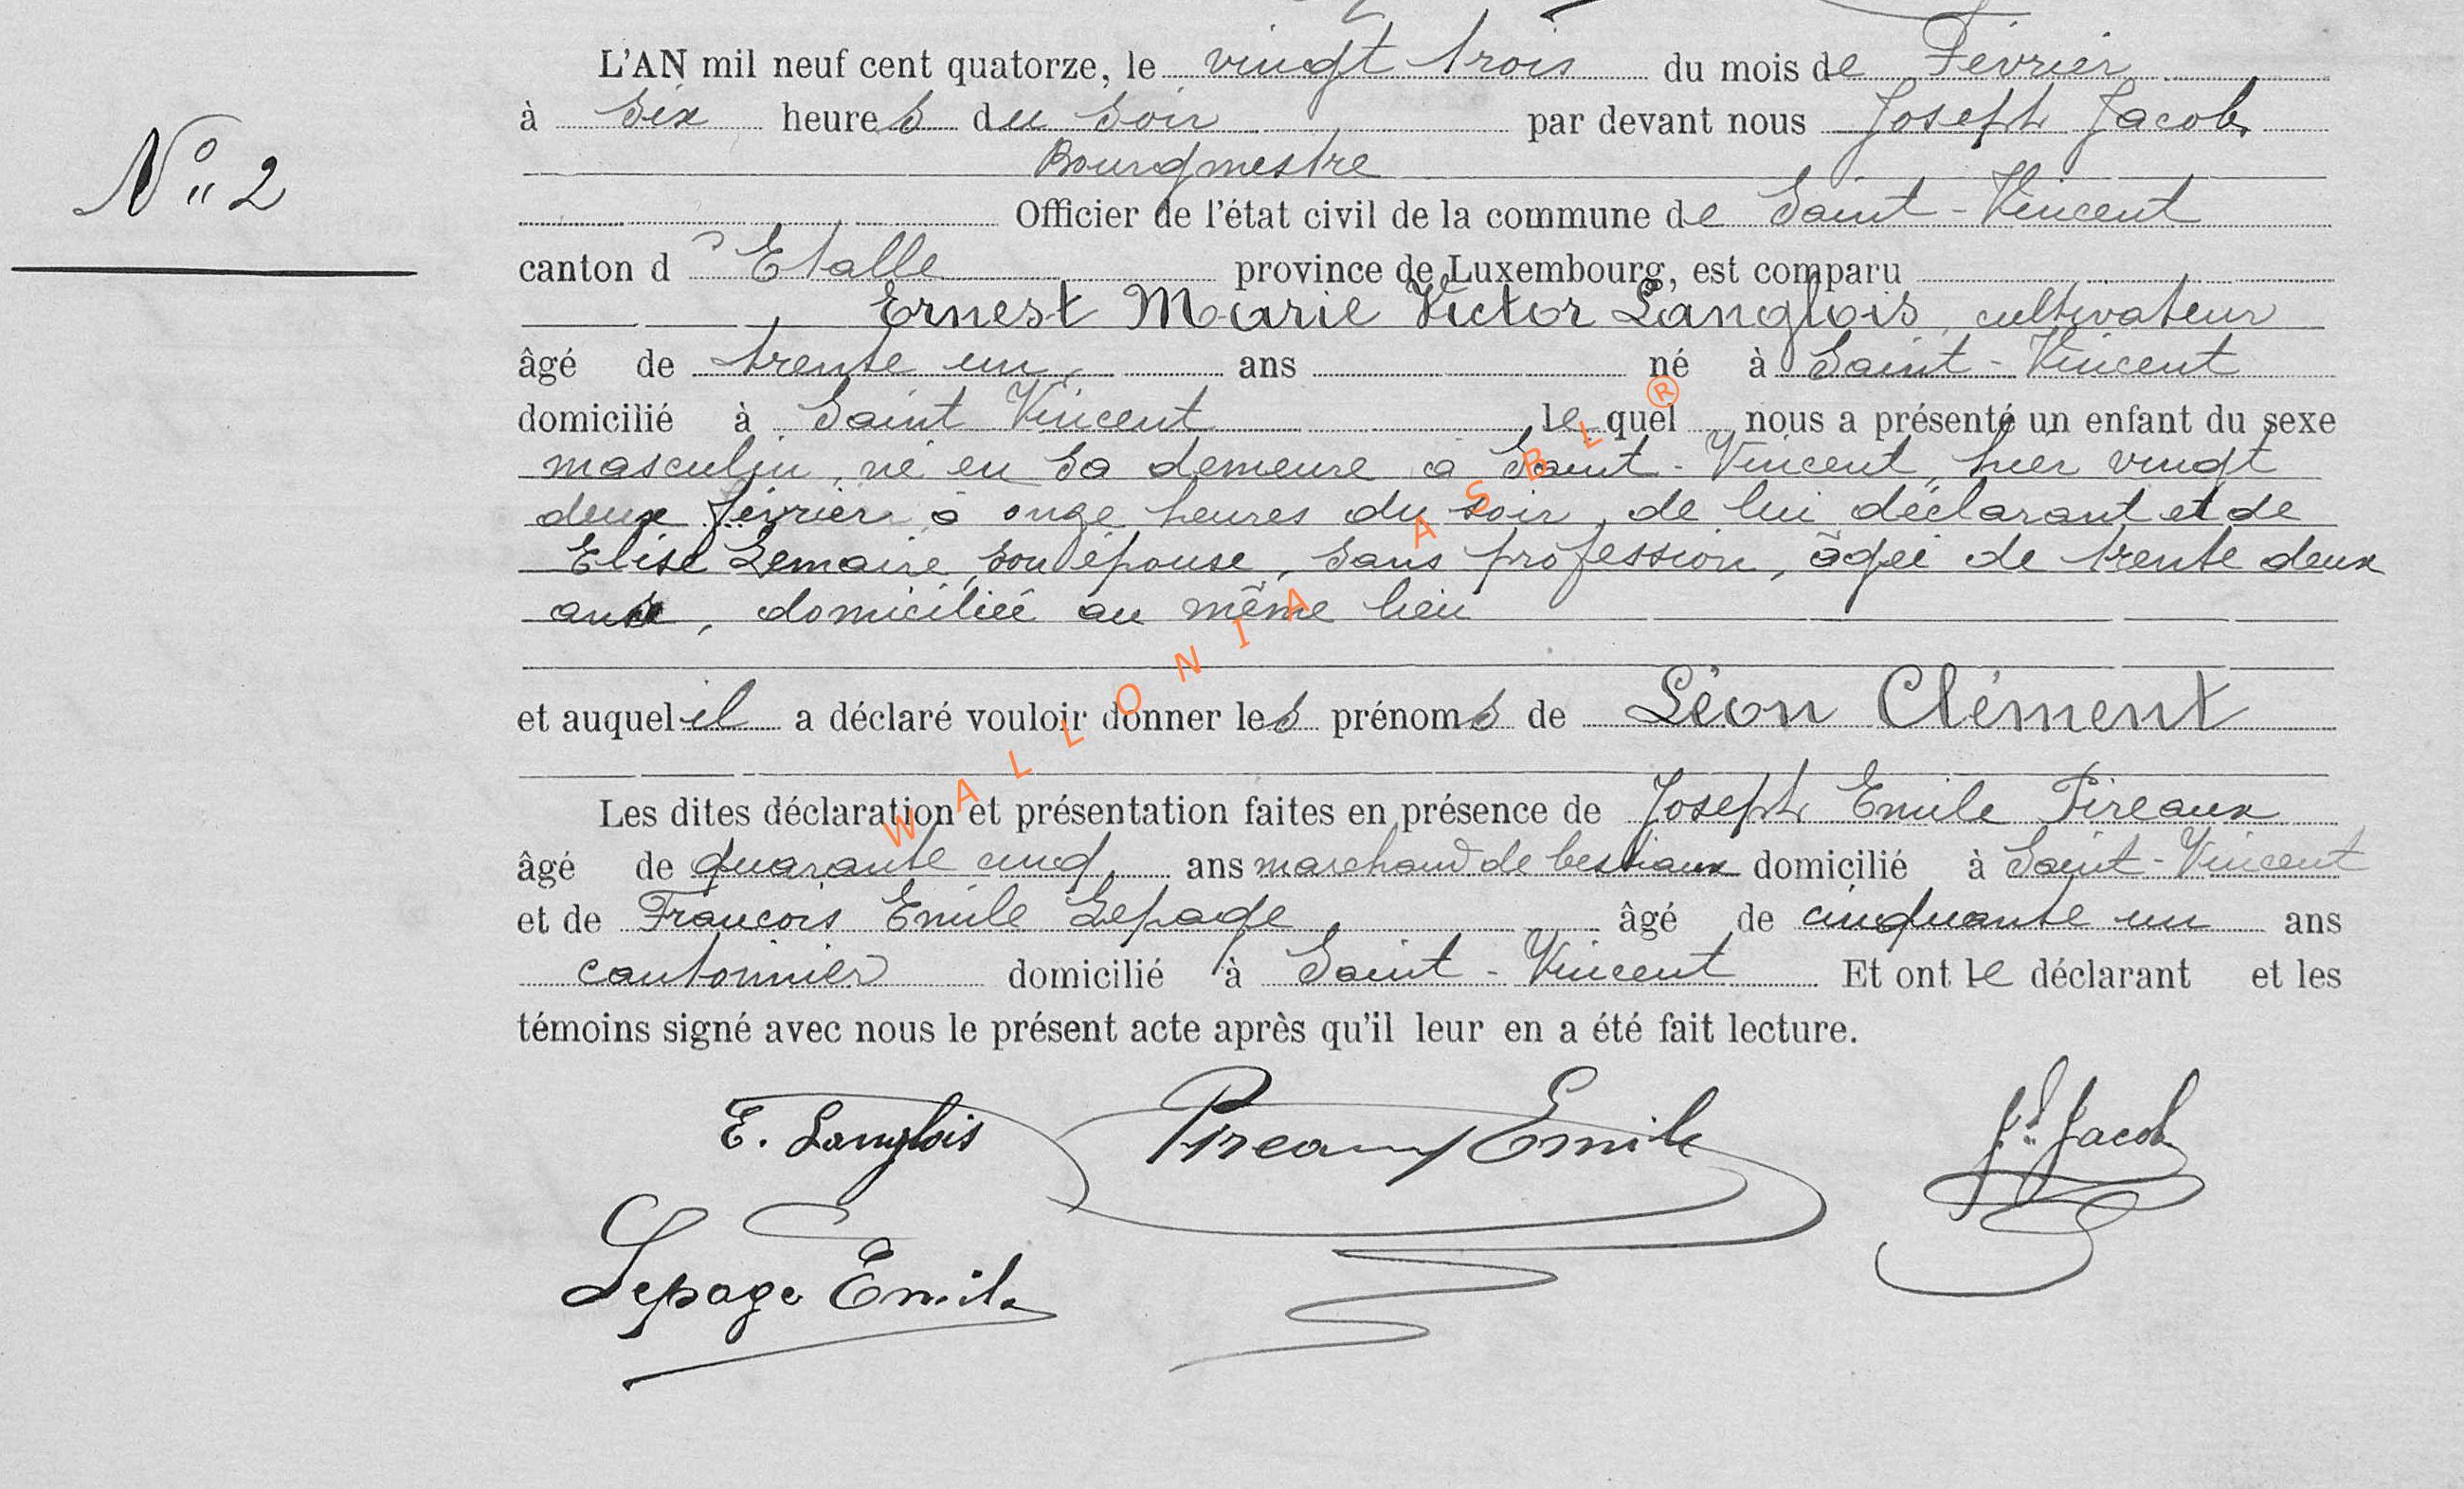 L'AN mil neuf cent quatorze, le vingt trois du mois de Février
à six heures du soir par devant nous Joseph Jacob,
Bourgmestre
N° 2
Officier de l'état civil de la commune de Saint-Vincent
canton d'Etalle province de Luxembourg, est comparu
Ernest Marie Victor Langlois, cultivateur
âgé de trente un ans né à Saint-Vincent
domicilié à Saint Vincent lequel nous a présenté un enfant du sexe
masculin, né en sa demeure à Saint-Vincent, hier vingt
deux février à onze heures du soir, de lui déclarant et de
Elise Lemaire, son épouse, sans profession, âgée de trente deux
ans, domiciliée au même lieu
et auquel il a déclaré vouloir donner les prénoms de Léon Clément
Les dites déclaration et présentation faites en présence de Joseph Emile Pireaux
âgé de quarante cinq ans marchand de bestiaux domicilié à Saint-Vincent
et de François Emile Lepage âgé de cinquante un ans
cantonnier domicilié à Saint-Vincent Et ont le déclarant et les
témoins signé avec nous le présent acte après qu'il leur en a été fait lecture.
E. Langlois Pireaux Emile Jh Jacob
Lepage Emile
WALLONIA ASBL ®